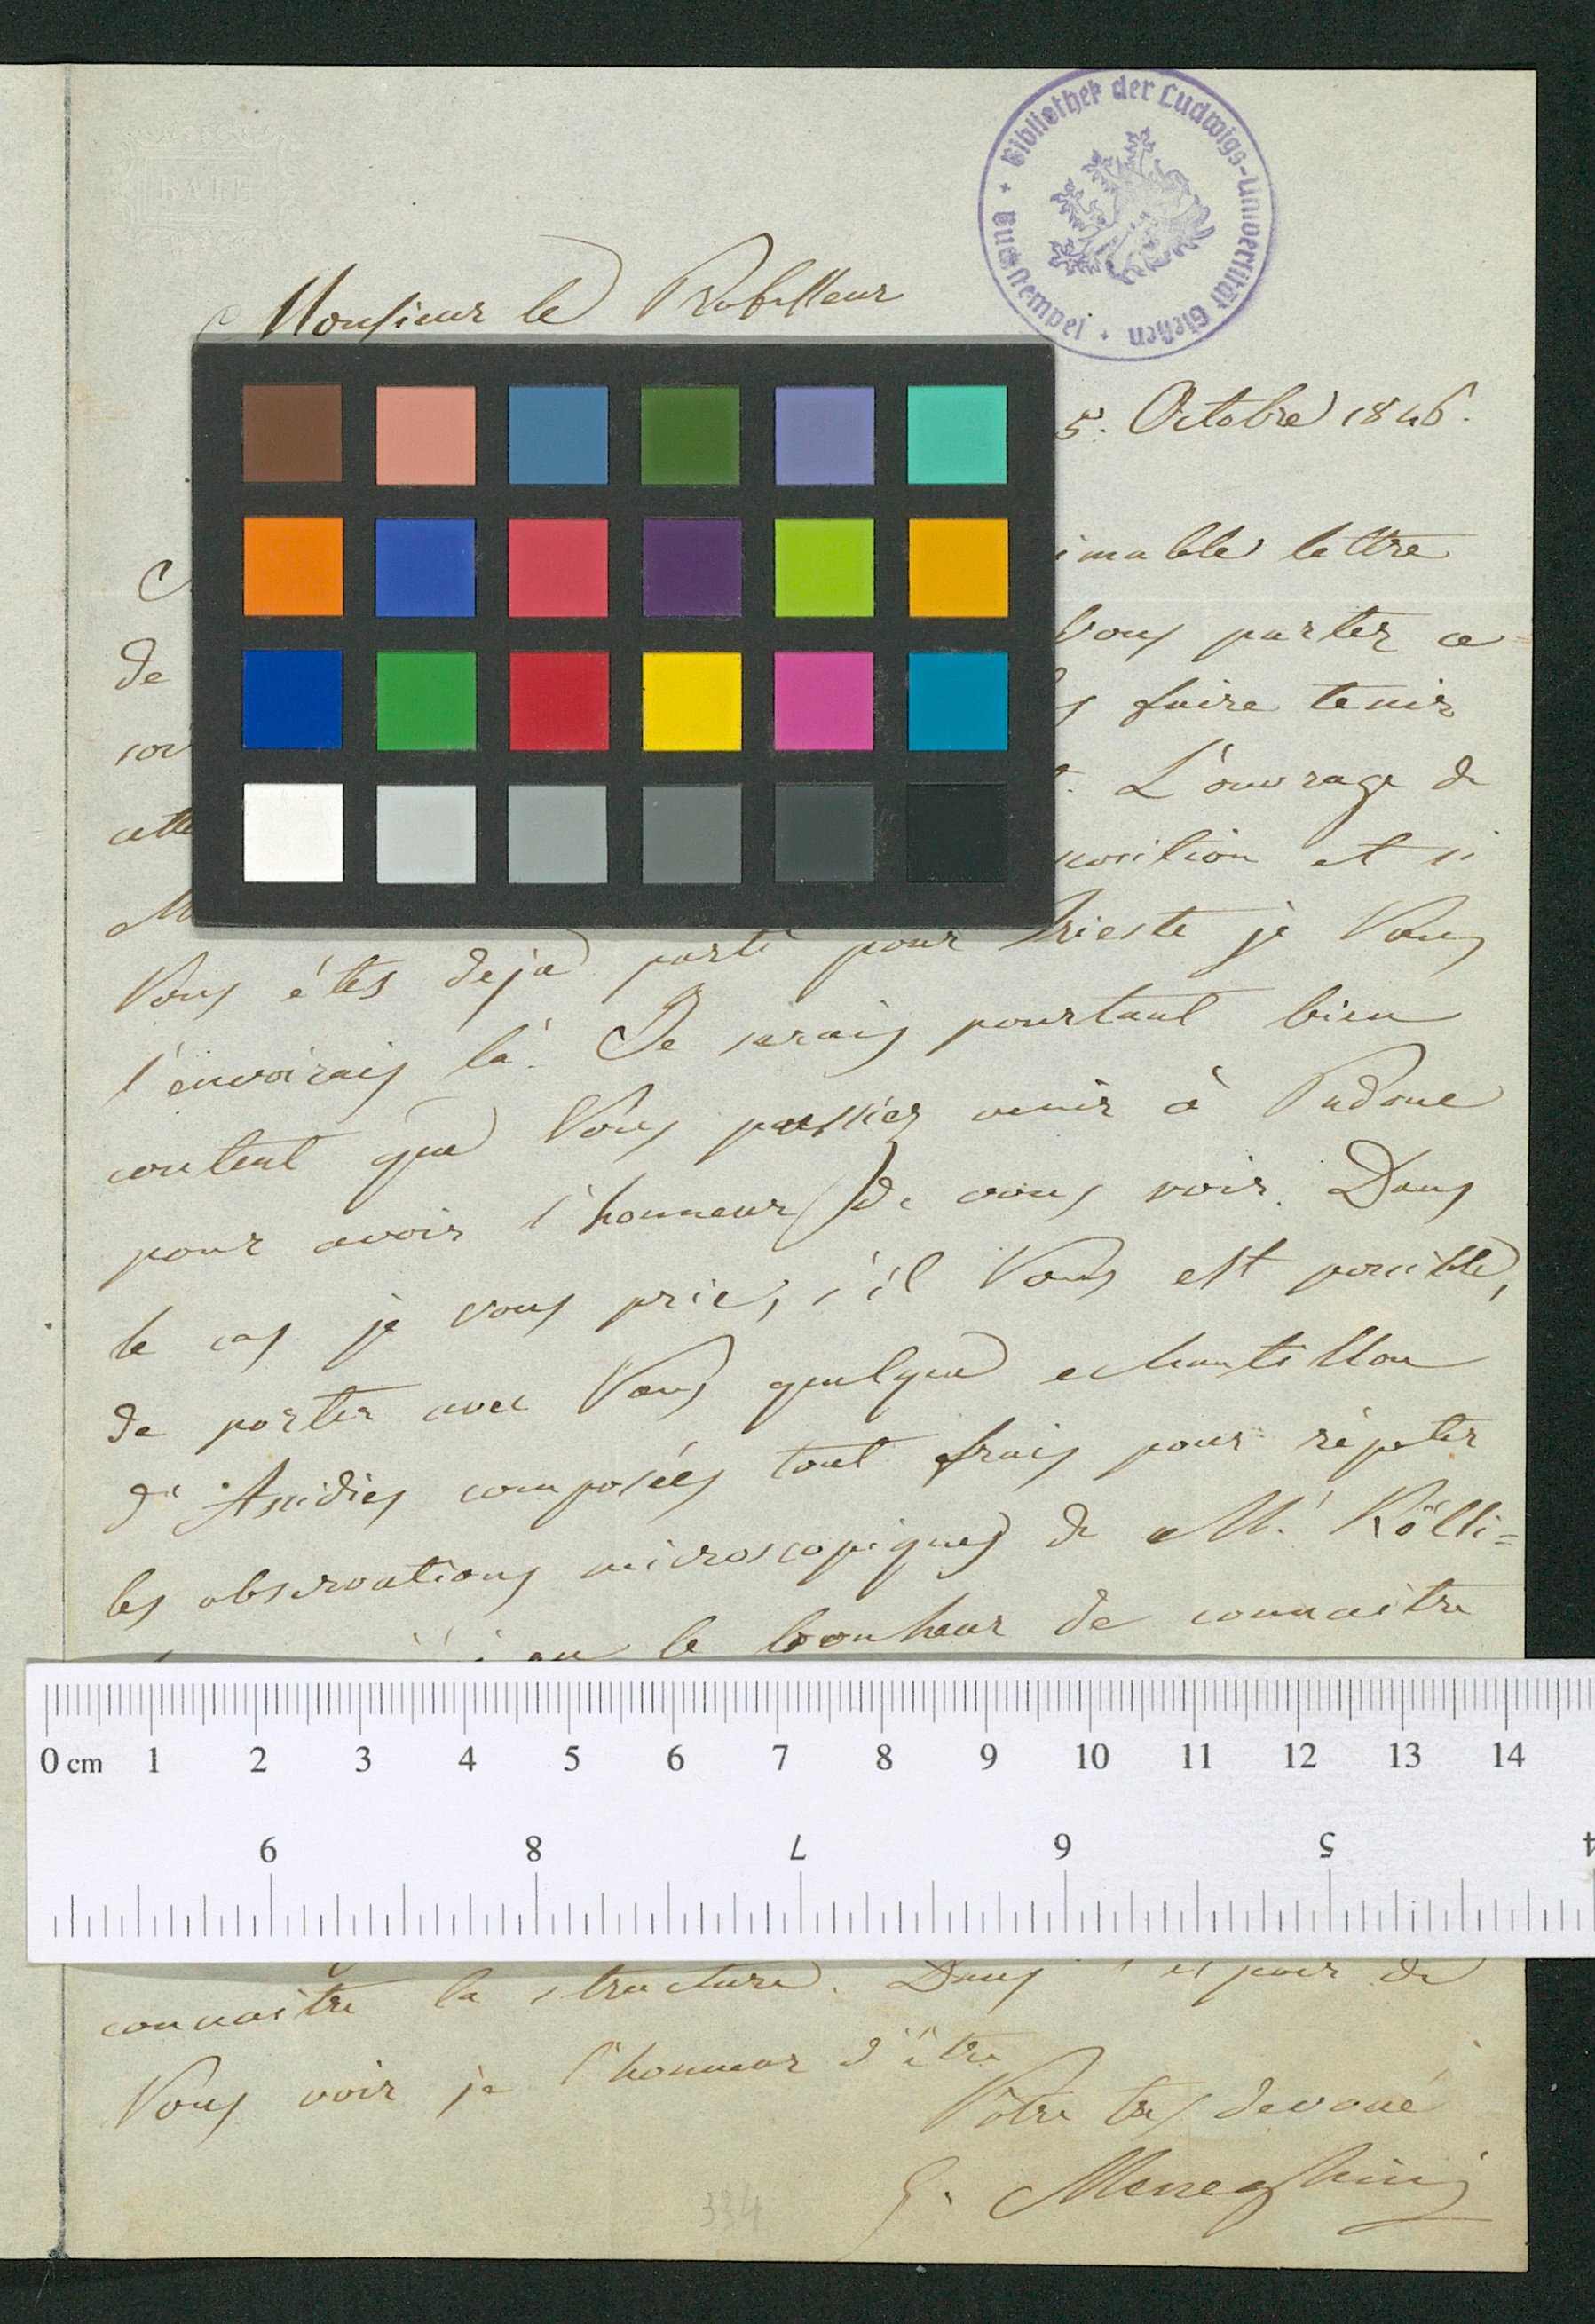 BATH
Bibliothek der Ludwigs-Universität Gießen + Ausstempel +
Monsieur le Professeur
5. Octobre 1846.
imable lettre
de Vous porter ce
faire tenir
cette L'ouvrage de
et si
Vous étes deja parti pour Trieste je Vous
l'envoirais là. Je serais pourtant bien
content que Vous puissiez venir à Padoue
pour avoir l'honneur de vous voir. Dans
le cas je vous prie, s'il Vous est possible,
de porter avec Vous quelque echantillon
d'Ascidies composées tout frais pour répéter
les observations microscopiques de M.r Kölli=
eu le bonheur de connaitre
0 cm 1 2 3 4 5 6 7 8 9 10 11 12 13 14
9 8 7 6 5 4
connaitre la structure. Dans l'espoir de
Vous voir je l'honneur d'être
Vôtre tres devoué
G. Meneghini
334